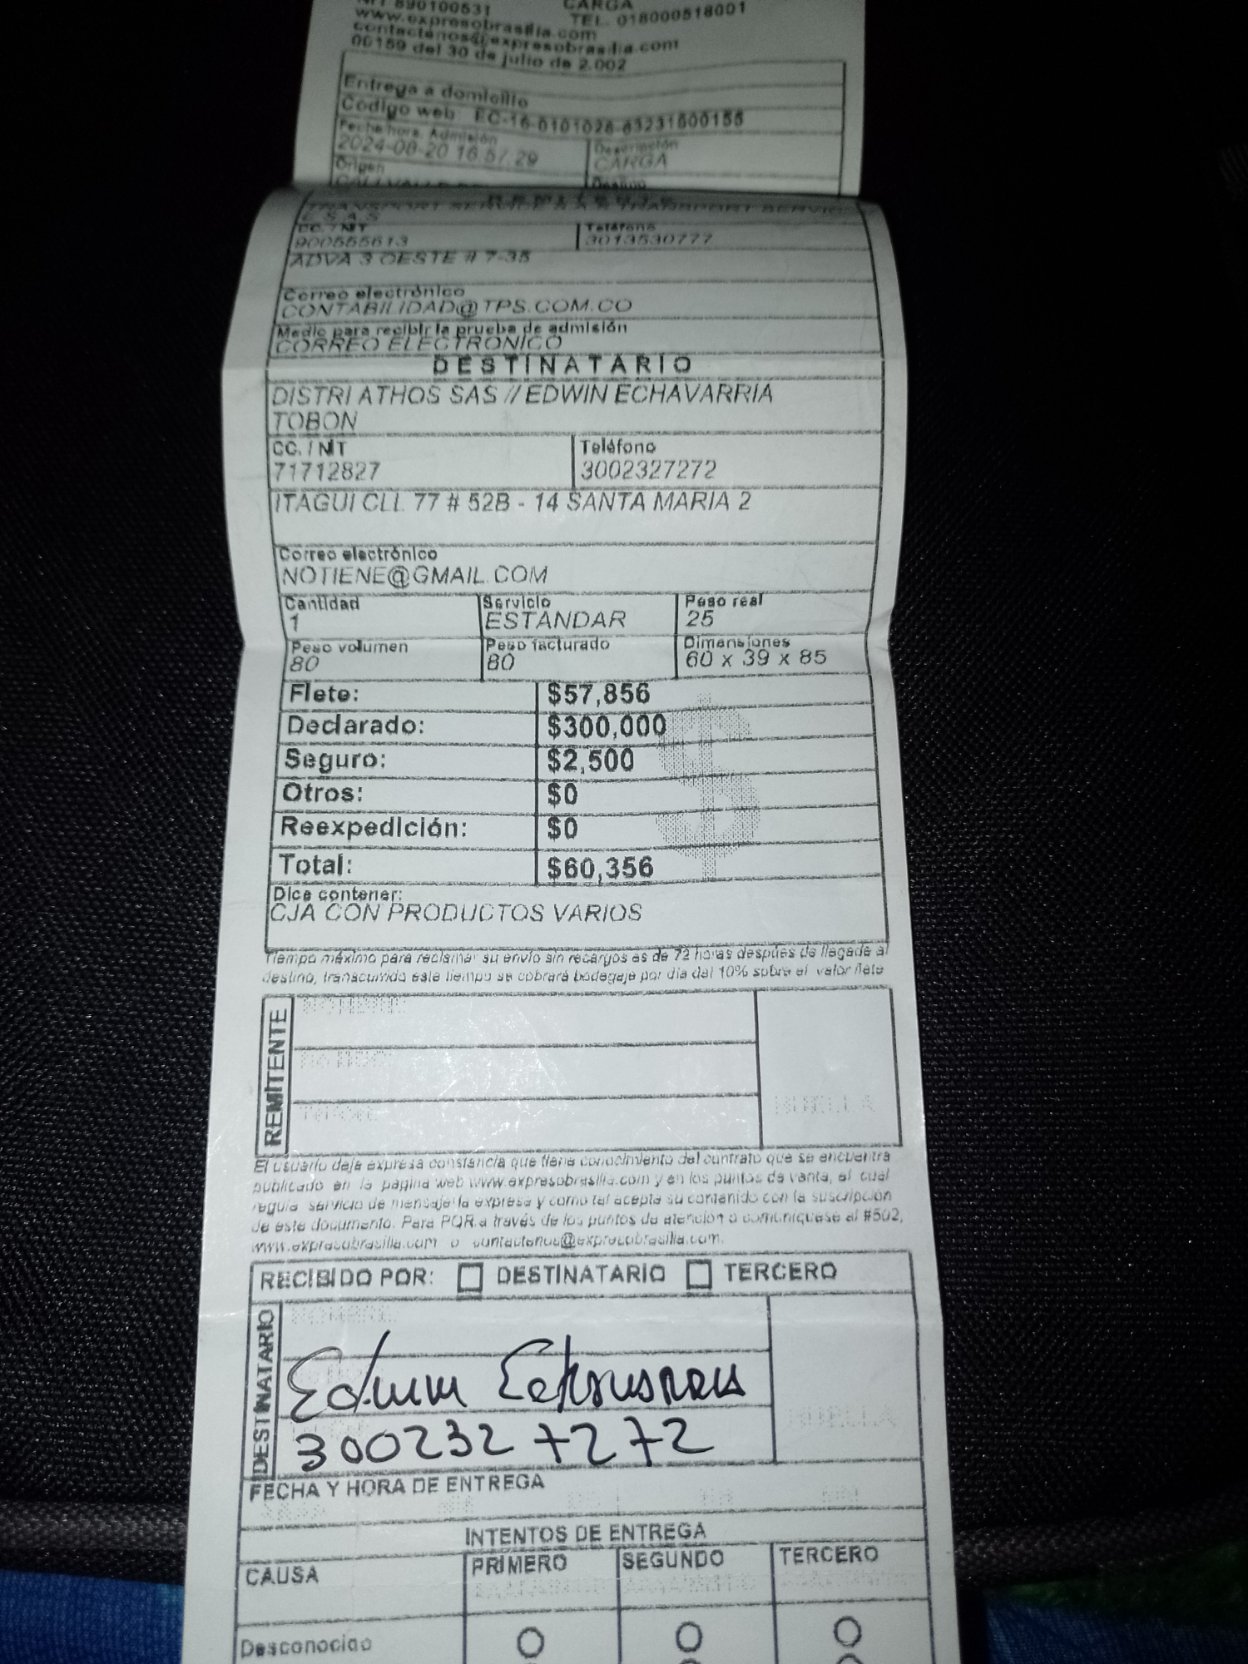 NIT 890100531
CARGA
www.expresobrasilia.com TEL. 018000518001
contactenos@expresobrasilia.com
00159 del 30 de julio de 2.002
Entrega a domicilio
Código web: EC-16-0101028-63231600155
Fecha hora Admisión Descripción
2024-06-20 16:57:29 CARGA
Origen Destino
REMITENTE
TRANSPORT SERVICE S.A.S TRANSPORT SERVIC
E S.A.S
CC. / NIT Teléfono
900555613 3013530777
ADVA 3 OESTE # 7-35
Correo electrónico
CONTABILIDAD@TPS.COM.CO
Medio para recibir la prueba de admisión
CORREO ELECTRONICO
DESTINATARIO
DISTRI ATHOS SAS // EDWIN ECHAVARRIA
TOBON
CC. / NIT Teléfono
71712827 3002327272
ITAGUI CLL 77 # 52B - 14 SANTA MARIA 2
Correo electrónico
NOTIENE@GMAIL.COM
Cantidad Servicio Peso real
1 ESTANDAR 25
Peso volumen Peso facturado Dimensiones
80 80 60 x 39 x 85
Flete: $57,856
Declarado: $300,000
Seguro: $2,500
Otros: $0
Reexpedición: $0
Total: $60,356
Dice contener:
CJA CON PRODUCTOS VARIOS
Tiempo máximo para reclamar su envío sin recargos es de 72 horas después de llegada a
destino, transcurrido este tiempo se cobrará bodegaje por día del 10% sobre el valor flete
REMITENTE
NOMBRE
HUELLA
El usuario deja expresa constancia que tiene conocimiento del contrato que se encuentra
publicado en la página web www.expresobrasilia.com y en los puntos de venta, el cual
regula servicio de mensajería expresa y como tal acepta su contenido con la suscripción
de este documento. Para PQR a través de los puntos de atención o comuníquese al #502,
www.expresobrasilia.com o contactenos@expresobrasilia.com.
RECIBIDO POR: DESTINATARIO TERCERO
DESTINATARIO
NOMBRE
Edwin Echavarria
HUELLA
3002327272
FECHA Y HORA DE ENTREGA
INTENTOS DE ENTREGA
CAUSA PRIMERO SEGUNDO TERCERO
Desconocido